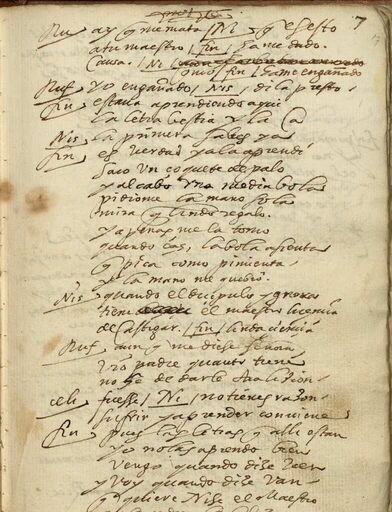 7
Ruf ay que me mata / Ni / que es esto
a tu maestro / fin / ha me dado
causa. / Ni /
como / fin / hame engañado
Ruf yo engañado / Nis / dila presto.
fin estaua aprendiendo aqui
la letra bestia y la Ca
Nis la primera sabes ya
fin es verdad ya la aprendi
saco un çoquete de palo
y al cabo vna media bola
pidiome la mano sola
mira que lindo regalo.
y apenas me la tomo
quando ças, la bola asienta
que pica como pimienta
y la mano me quebro.
Nis quando el diçipulo ygnora
tiene el maestro licencia
de castigar. / fin / linda ciençia
Ruf aunque me diese señora
vro padre quanto tiene
no he de darle otra liçion.
celi fuesse / Ni / no tienes raçon.
sufrir y aprender conviene
fin pues las letras que alli estan
yo no las aprendo bien
vengo quando dizen ven
y voy quando dizen van.
que quiere Nise el Maestro